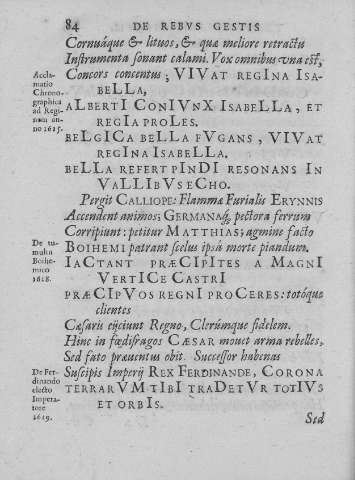 84 DE REBVS GESTIS
Cornuáque & lituos, & quæ meliore retractu
Instrumenta sonant calami. Vox omnibus vna est,
Accla-
matio
Chrono-
graphica
ad Regi-
nam an-
no 1615.
Concors concentus; VIVat regIna Isa-
beLLa,
aLbertI ConIVnX IsabeLLa, et
regIa proLes.
beLgICa beLLa fVgans, VIVat
regIna IsabeLLa.
beLLa refert pInDI resonans In
VaLLIbVs eCho.
Pergit CALLIOPE: Flamma Furialis ERYNNIS
Accendent animos; GERMANAq́; pectora ferrum
Corripiunt: petitur MATTHIAS; agmine facto
De tu-
multu
Bohe-
mico
1618.
BOIHEMI patrant scelus ipsâ morte piandum.
IaCtant præCIpItes a MagnI
VertICe CastrI
præCIpVos regnI proCeres: totóque
clientes
Cæsaris eijciunt Regno, Clerúmque fidelem.
Hinc in fœdifragos CÆSAR mouet arma rebelles,
Sed fato præuentus obit. Successor habenas
De Fer-
dinando
electo
Impera-
tore
1619.
Suscipis Imperij REX FERDINANDE, CORONA
TERRARVM tIbI traDetVr totIVs
et orbIs.
Sed